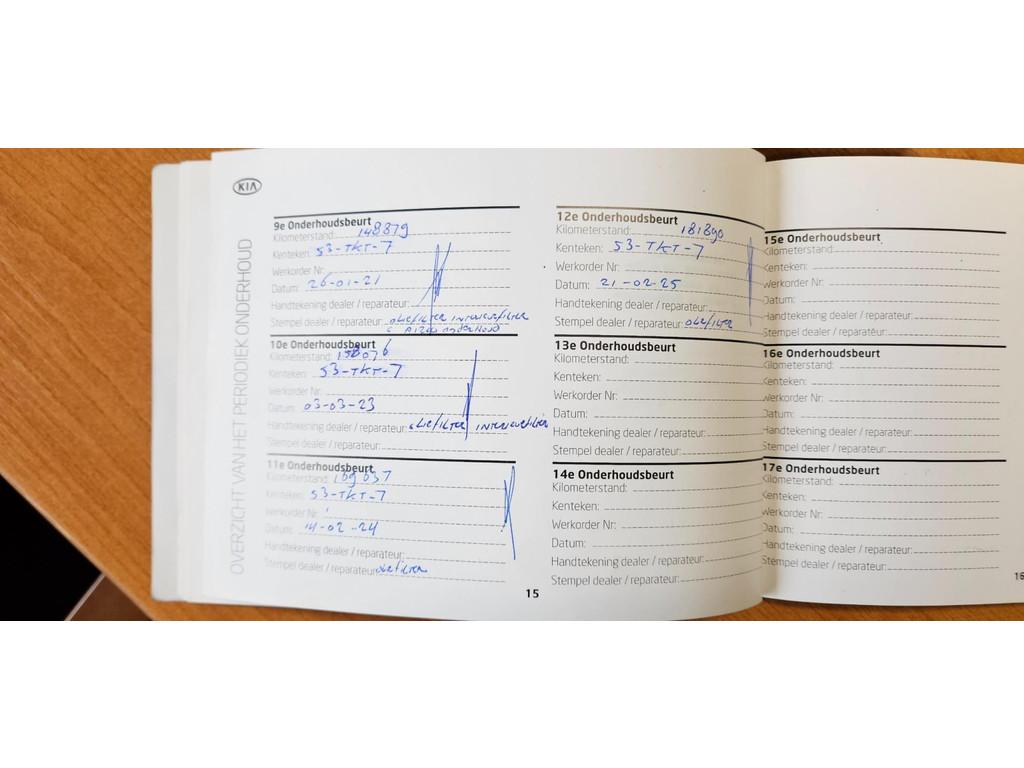 KIA
OVERZICHT VAN HET PERIODIEK ONDERHOUD
9e Onderhoudsbeurt
Kilometerstand: 148879
Kenteken: 53-TKT-7
Werkorder Nr:
Datum: 26-01-21
Handtekening dealer / reparateur:
Stempel dealer / reparateur: oliefilter interieurfilter
onderhoud
10e Onderhoudsbeurt
Kilometerstand: 158076
Kenteken: 53-TKT-7
Werkorder Nr:
Datum: 03-03-23
Handtekening dealer / reparateur: oliefilter interieurfilter
Stempel dealer / reparateur:
11e Onderhoudsbeurt
Kilometerstand: 169637
Kenteken: 53-TKT-7
Werkorder Nr:
Datum: 14-02-24
Handtekening dealer / reparateur:
Stempel dealer / reparateur: oliefilter
12e Onderhoudsbeurt
Kilometerstand: 181890
Kenteken: 53-TKT-7
Werkorder Nr:
Datum: 21-02-25
Handtekening dealer / reparateur:
Stempel dealer / reparateur: oliefilter
13e Onderhoudsbeurt
Kilometerstand:
Kenteken:
Werkorder Nr:
Datum:
Handtekening dealer / reparateur:
Stempel dealer / reparateur:
14e Onderhoudsbeurt
Kilometerstand:
Kenteken:
Werkorder Nr:
Datum:
Handtekening dealer / reparateur:
Stempel dealer / reparateur:
15
15e Onderhoudsbeurt
Kilometerstand:
Kenteken:
Werkorder Nr:
Datum:
Handtekening dealer / reparateur:
Stempel dealer / reparateur:
16e Onderhoudsbeurt
Kilometerstand:
Kenteken:
Werkorder Nr:
Datum:
Handtekening dealer / reparateur:
Stempel dealer / reparateur:
17e Onderhoudsbeurt
Kilometerstand:
Kenteken:
Werkorder Nr:
Datum:
Handtekening dealer / reparateur:
Stempel dealer / reparateur:
16